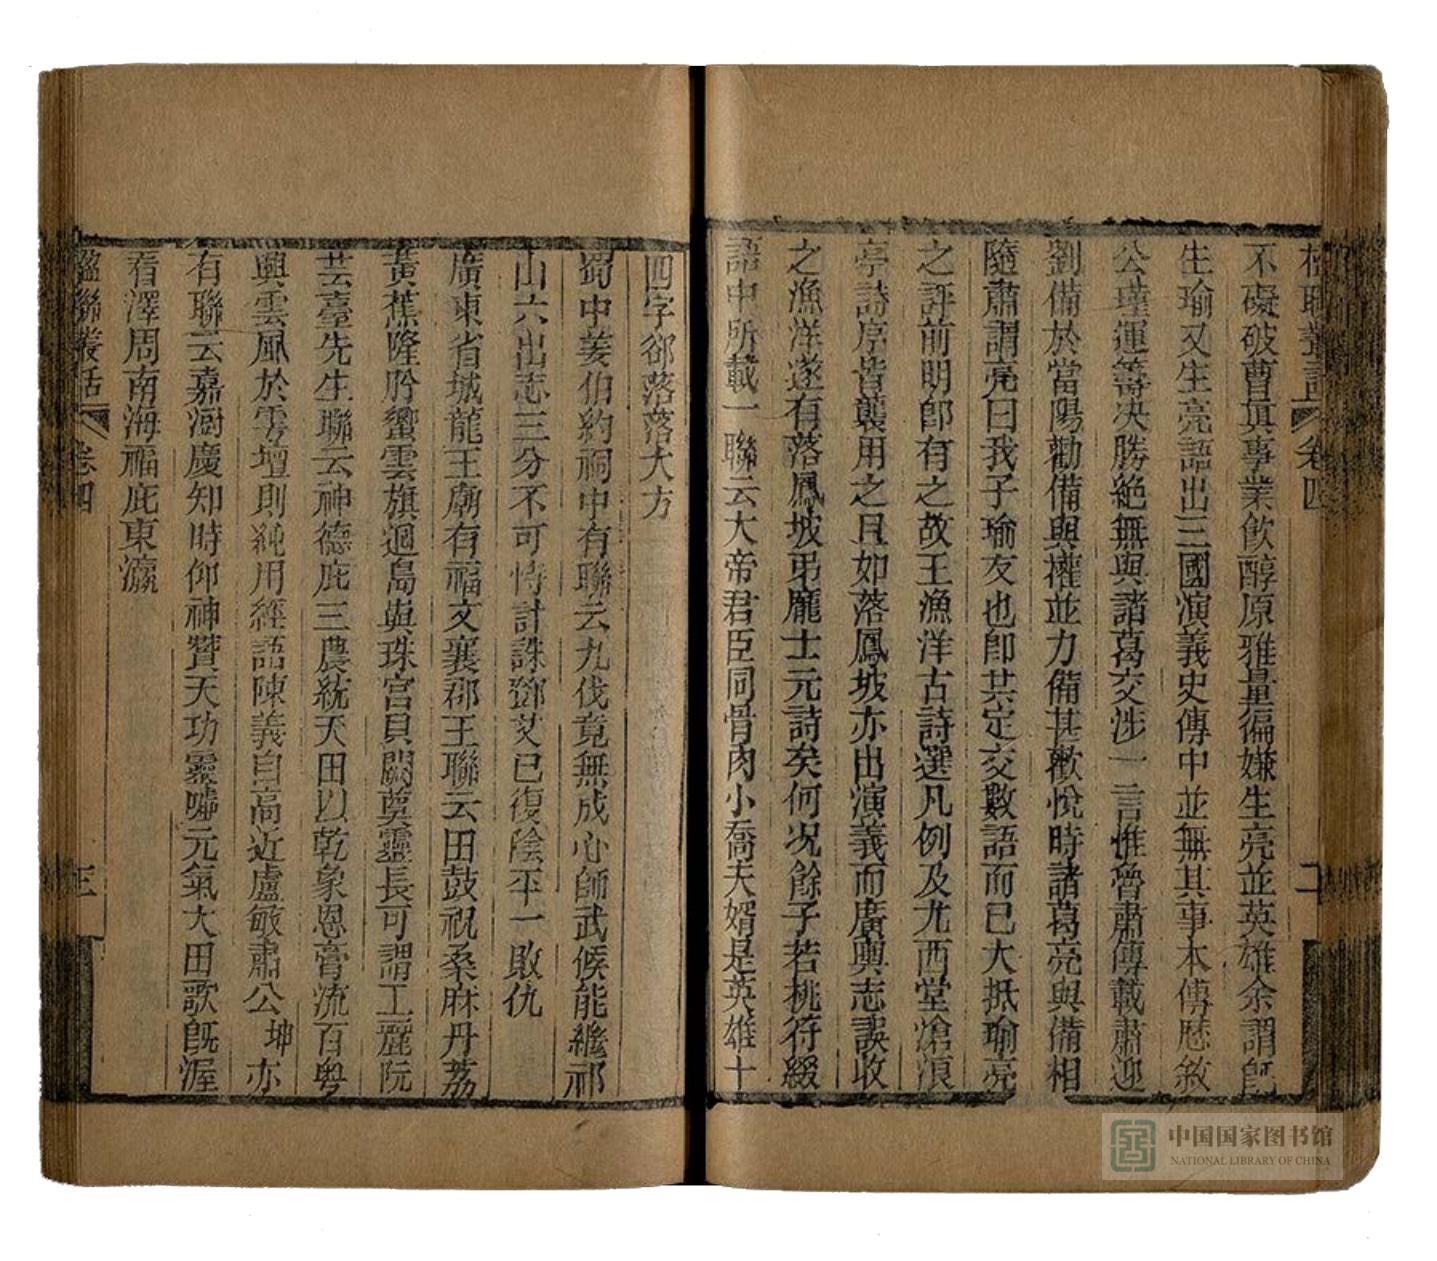 楹聯叢話 卷四 二
不礙破曹真事業飲醇原雅量偏嫌生亮並英雄余謂旣
生瑜又生亮語出三國演義史傳中並無其事本傳歷敘
公瑾運籌决勝絶無與諸葛交涉一言惟魯肅傳載肅迎
劉備於當陽勸備與權並力備甚歡悅時諸葛亮與備相
隨肅謂亮曰我子瑜友也卽共定交數語而已大抵瑜亮
之評前明卽有之故王漁洋古詩選凡例及尤西堂滄浪
亭詩序皆襲用之且如落鳳坡亦出演義而廣輿志誤收
之漁洋遂有落鳳坡弔龐士元詩矣何况餘子若桃符綴
語中所載一聯云大帝君臣同骨肉小喬夫婿是英雄十
四字卻落落大方
蜀中姜伯約祠中有聯云九伐竟無成心師武候能繼祁
山六出志三分不可恃計誅鄧艾已復陰平一敗仇
廣東省城龍王廟有福文襄郡王聯云田鼓祝桑麻丹荔
黃蕉隆肹蠁雲旗廻島與珠宮貝闕奠靈長可謂工麗阮
芸臺先生聯云神德庇三農統天田以乾象恩膏流百粵
興雲風於雩壇則純用經語陳義自高近盧敏肅公坤亦
有聯云嘉澍慶知時仰神贊天功靈嘘元氣大田歌旣渥
看澤周南海福庇東瀛
楹聯叢話 卷四 三
中国国家图书馆
NATIONAL LIBRARY OF CHINA